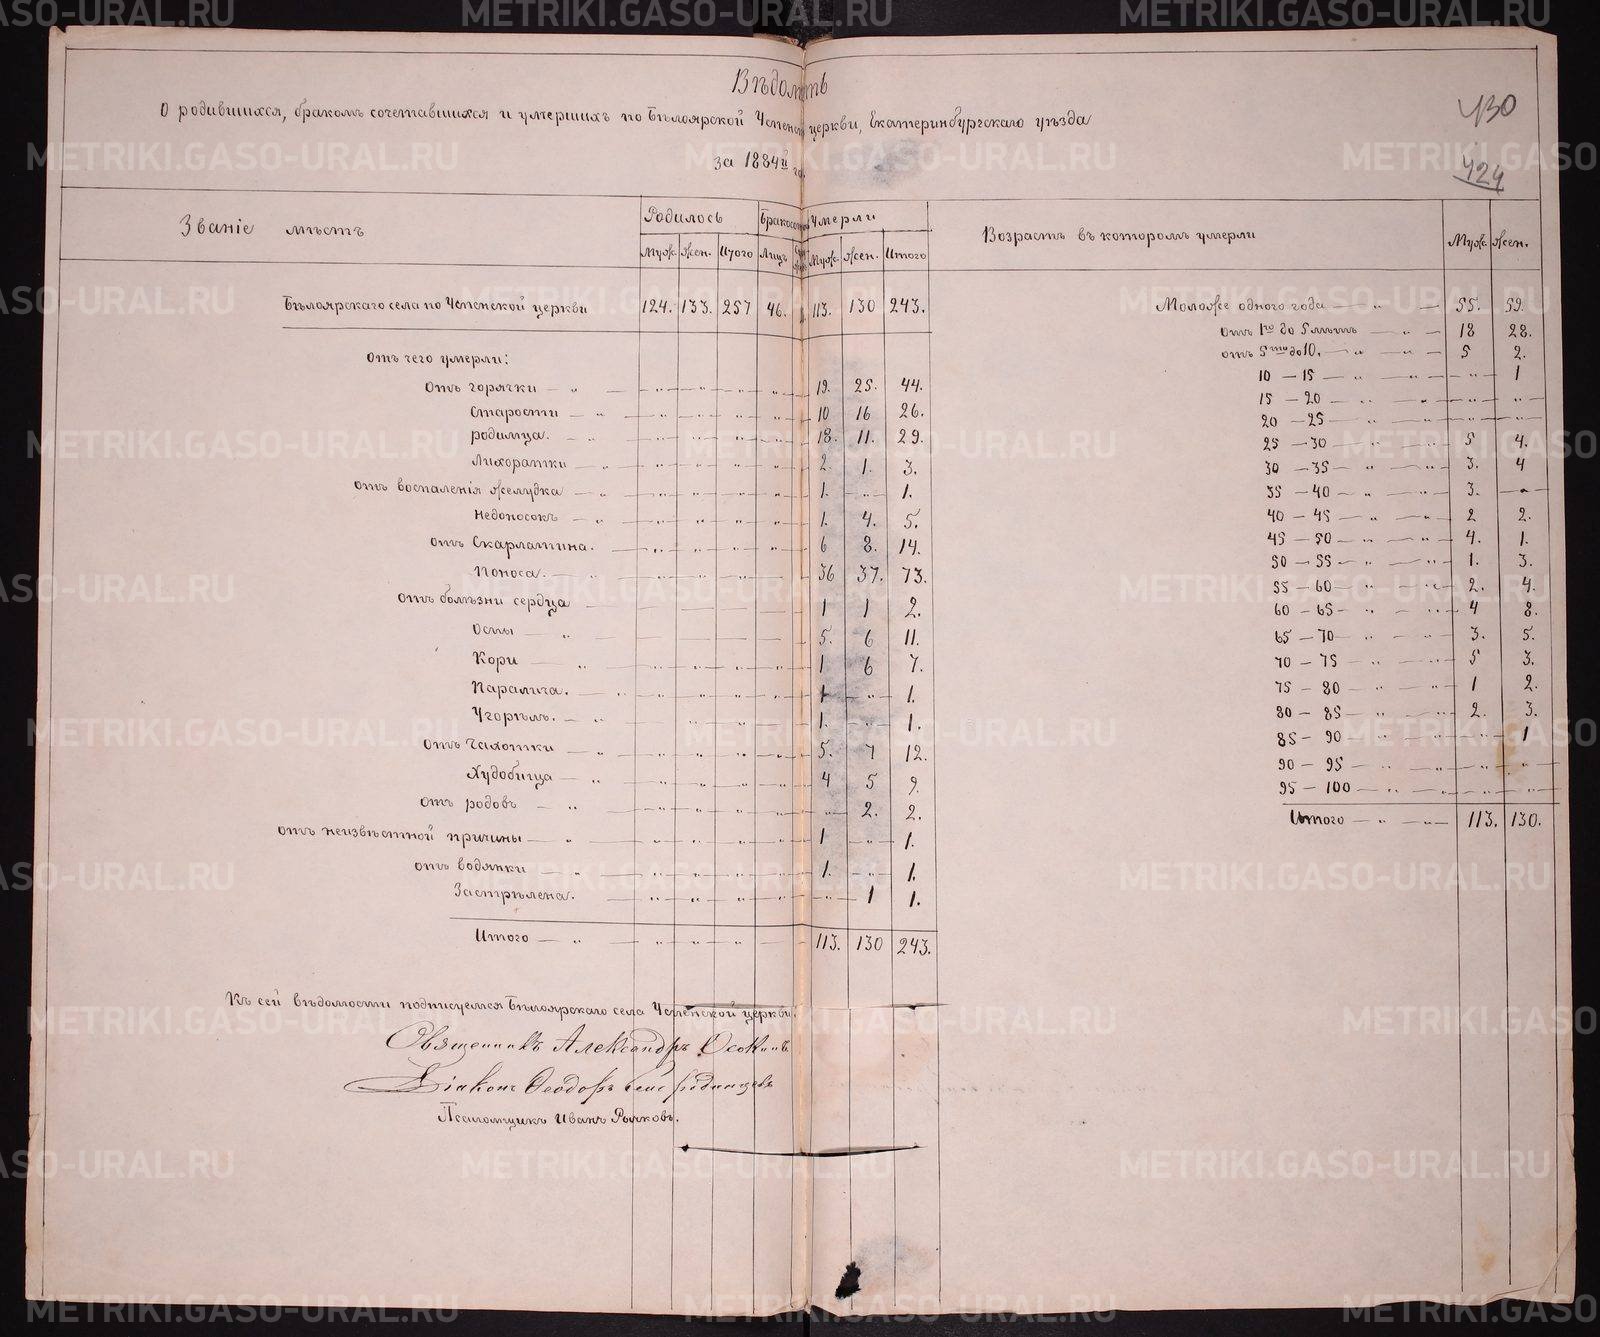 Вѣдомость
О родившихся, бракомъ сочетавшихся и умершихъ по Бѣлоярской Успенской церкви, Екатеринбургскаго уѣзда
за 1884й годъ
430
424
Званіе мѣстъ
Родилось
Умерли
Муж. Жен. Итого Лицъ Муж. Жен. Итого
Бѣлоярскаго села по Успенской церкви 124. 133. 257 46. 113. 130 243.
отъ чего умерли:
Отъ горячки — „ — „ — „ — „ — „ — 19. 25. 44.
Старости — „ — „ — „ — „ — „ — 10 16 26.
родимца. — „ — „ — „ — „ — „ — 18. 11. 29.
Лихоратки — „ — „ — „ — „ — „ — 2. 1. 3.
отъ воспаленія желудка — „ — „ — „ — „ — „ — 1. — „ — 1.
Недоносокъ — „ — „ — „ — „ — „ — 1. 4. 5.
отъ Скарлатина. — „ — „ — „ — „ — 6 8. 14.
Поноса. — „ — „ — „ — „ — „ — 36 37. 73.
отъ болѣзни сердца — 1 1 2.
Оспы — „ — 5. 6 11.
Кори — „ — „ — „ — „ — „ — 1 6 7.
Паралича. — „ — „ — „ — „ — „ — 1 — „ — 1.
Угорѣлъ. — „ — „ — „ — „ — 1. — „ — 1.
отъ Чахотки — „ — „ — „ — „ — „ — 5. 7 12.
Худобища — „ — „ — „ — „ — „ — 4 5 9.
отъ родовъ — „ — „ — „ — „ — „ — „ — 2. 2.
отъ неизвѣстной причины — „ — „ — „ — „ — „ — 1 — „ — 1.
отъ водянки — „ — „ — „ — „ — „ — 1. — „ — 1.
Застрѣлена. — „ — „ — „ — „ — „ — 1 1.
Итого — „ — „ — „ — „ — 113. 130 243.
Къ сей вѣдомости подписуемся Бѣлоярскаго села Успенской церкви:
Священникъ Александръ Осокинъ
Діаконъ Ѳеодоръ
Псаломщикъ Иванъ Рычковъ.
Возрастъ въ которомъ умерли Муж. Жен.
Моложе одного года — „ — 55. 59.
отъ 1го до 5 лѣтъ — „ — 18 28.
отъ 5ти до 10. — „ — „ — 5 2.
10 — 15 — „ — „ — „ — 1
15 — 20 — „ — „ — „ — „
20 — 25 — „ — „ — „ — „ —
25 — 30 — „ — „ — 5 4.
30 — 35 — „ — „ — 3. 4
35 — 40 — „ — „ — 3. — „ —
40 — 45 — „ — „ — 2 2.
45 — 50 — „ — „ — 4. 1.
50 — 55 — „ — „ — 1. 3.
55 — 60 — „ — „ — 2. 4.
60 — 65 — „ — „ — 4 8.
65 — 70 — „ — „ — 3. 5.
70 — 75 — „ — „ — 5 3.
75 — 80 — „ — „ — 1 2.
80 — 85 — „ — „ — 2. 3.
85 — 90 — „ — „ — „ — 1
90 — 95 — „ — „ — „ — „
95 — 100 — „ — „ — „ — „ —
Итого — „ — „ — 113. 130.
METRIKI.GASO-URAL.RU